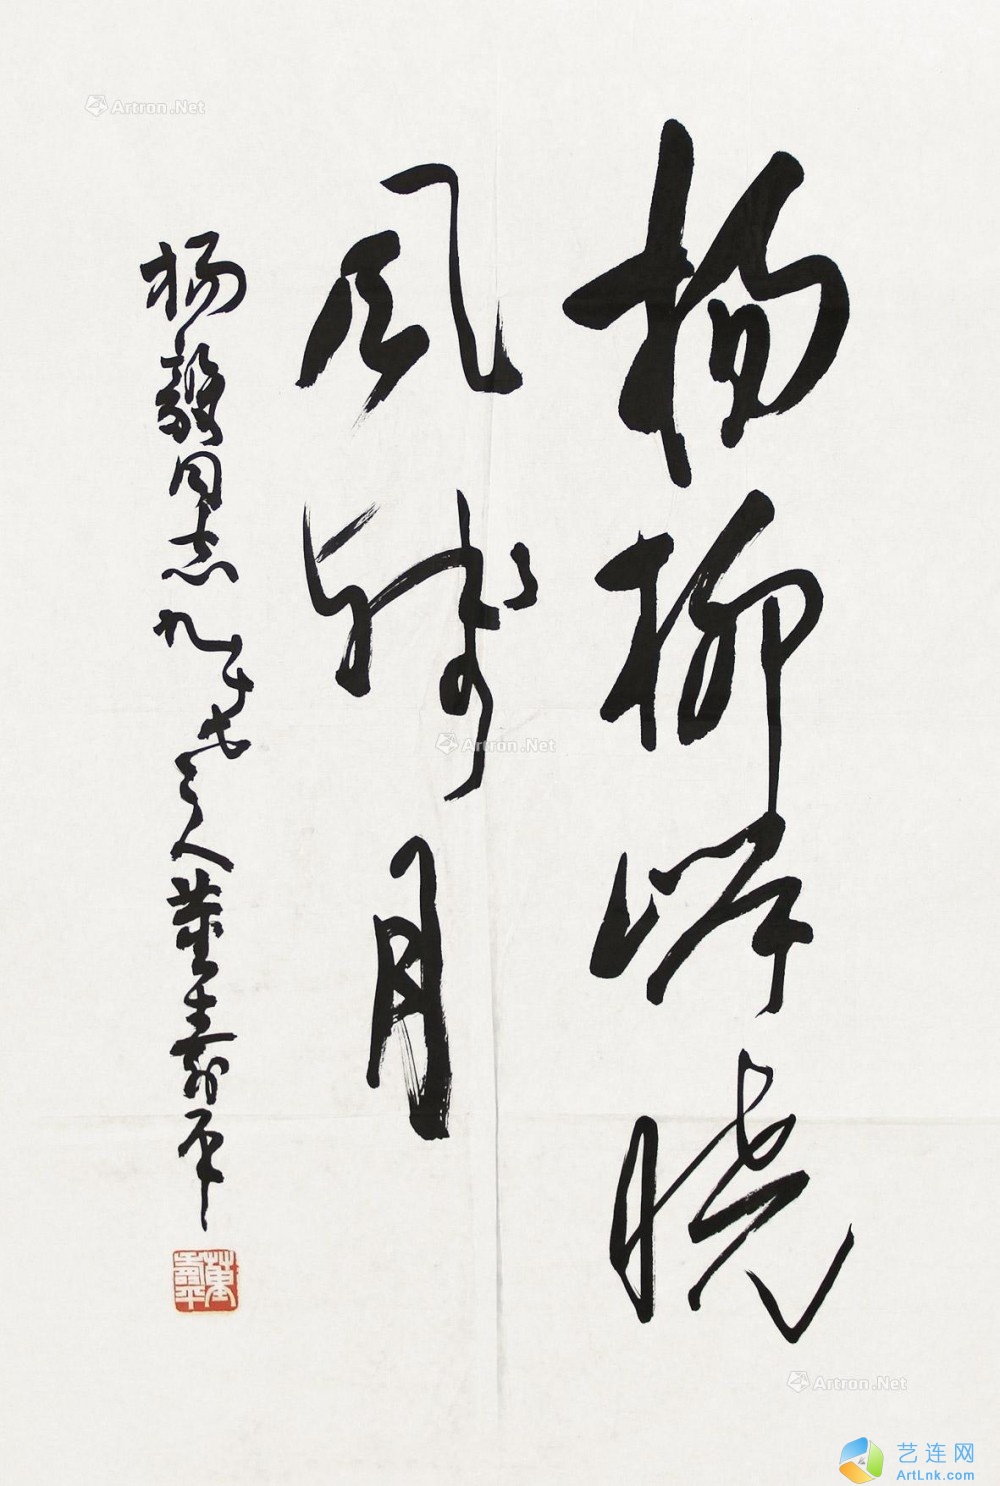 杨柳岸晓
风残月
杨毅同志 九十老人董寿平
董寿平
Artron.Net
Artron.Net
Artron.Net
艺连网
ArtLnk.com